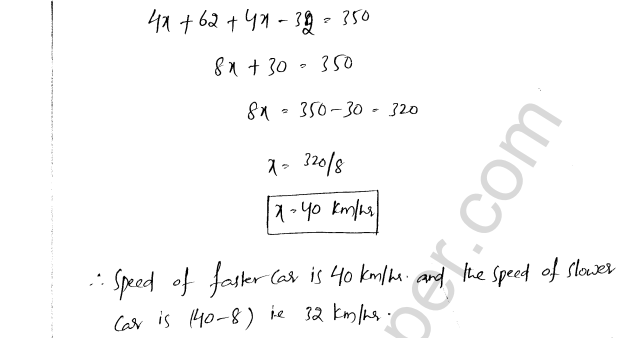 4x + 62 + 4x - 32 = 350
8x + 30 = 350
8x = 350 - 30 = 320
x = 320/8
x = 40 km/hr
∴ Speed of faster car is 40 km/hr. and the speed of slower
car is (40-8) ie 32 km/hr.
per.com